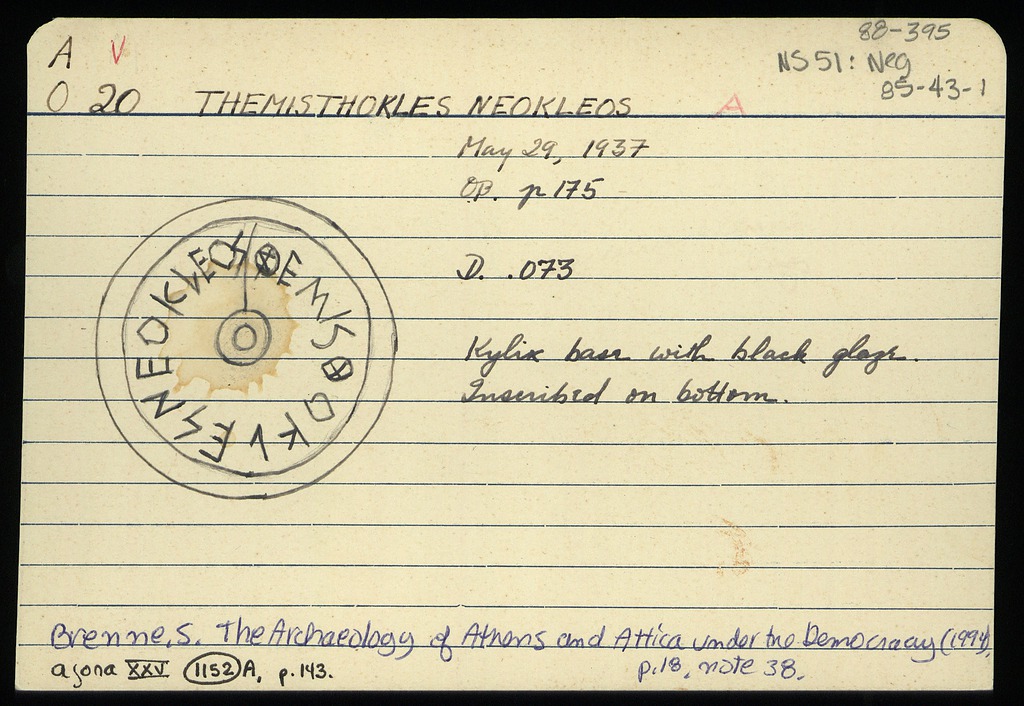 A V
88-395
NS 51: Neg
85-43-1
O 20 THEMISTHOKLES NEOKLEOS A
May 29, 1937
OP. p 175
D. .073
⊗EMIS⊗OKLESNEOKLEOS
Kylix base with black glaze.
Inscribed on bottom.
Brenne, S. The Archaeology of Athens and Attica under the Democracy (1994),
p.18, note 38.
agora XXV 1152 A, p. 143.